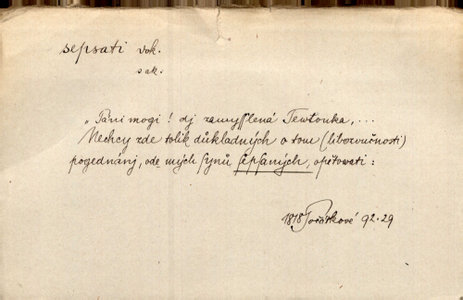 sepsati vok.
sak.
„Páni mogi! dj zamyšlená Tewtonka, ...
Nechcy zde tolik důkladných o tom (libozvučnosti)
pogednánj, ode mých synů sepsaných, opětowati:
1818 Počátkové 92-29